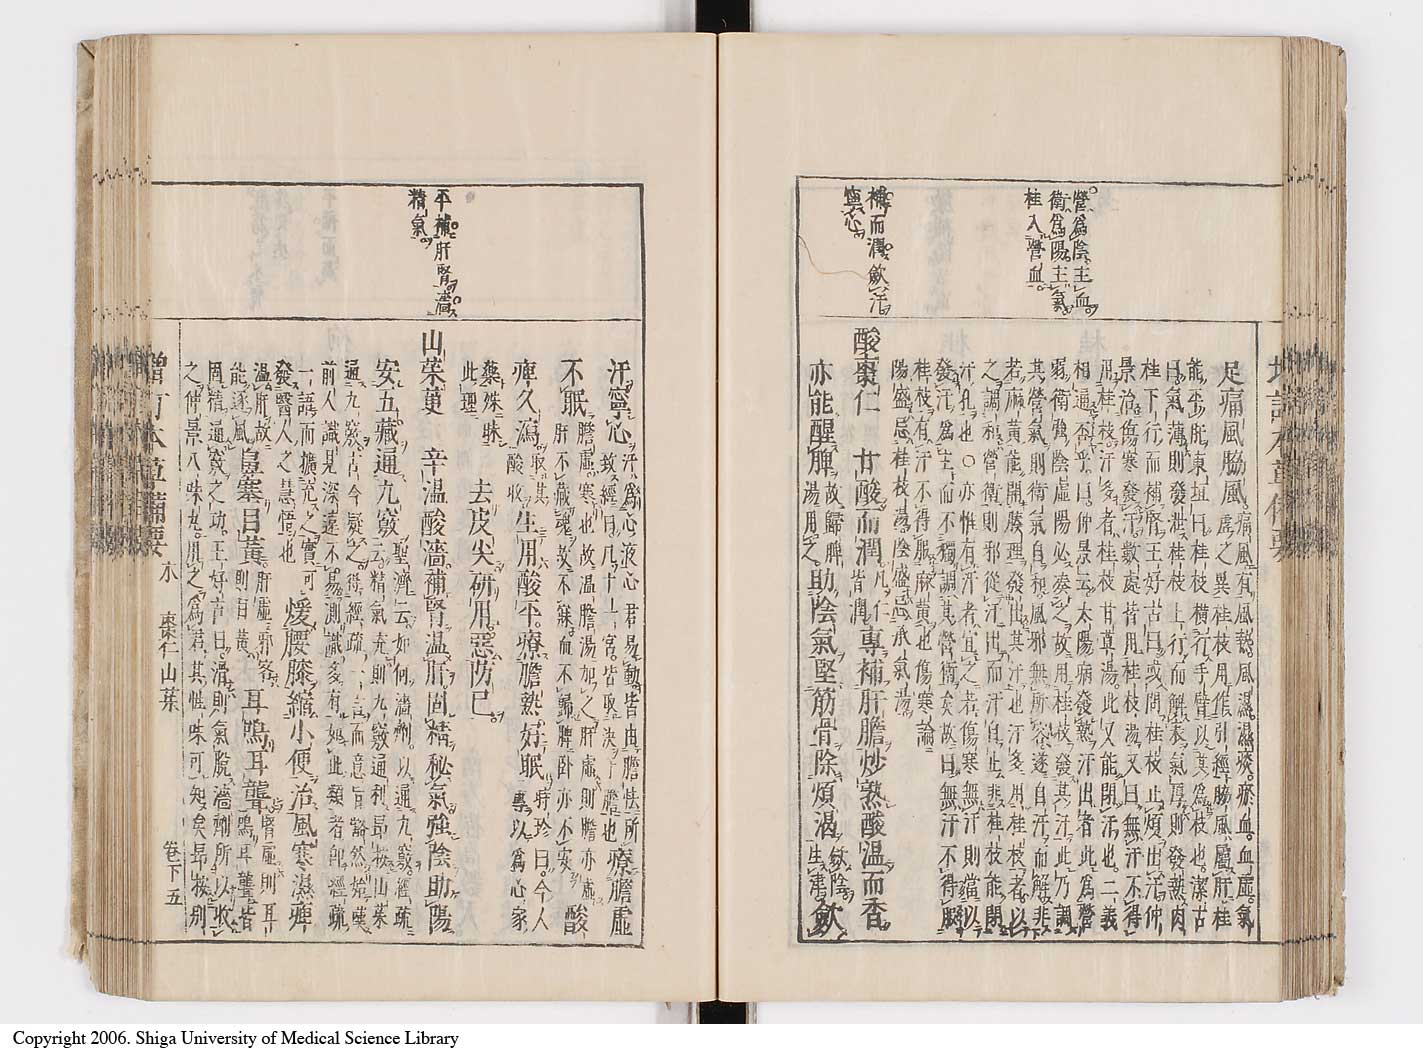 營爲陰主血
衛爲陽主氣
桂入營血
補而潤斂汗
寧心
足痛風脇風
痛風有風熱風濕濕痰瘀血血虛氣
虛之異桂枝用作引經脇風屬肝桂
能平肝東垣曰桂枝橫行手臂以其爲枝也潔古
曰氣薄則發泄桂枝上行而解表氣厚則發熱肉
桂下行而補腎王好古曰或問桂枝止煩出汗仲
景治傷寒發汗數處皆用桂枝湯又曰無汗不得
用桂枝汗多者桂枝甘草湯此又能閉汗也二義
相通否乎曰仲景云太陽病發熱汗出者此爲營
弱衛強陰虛陽必湊之故用桂枝發其汗此乃調
其營氣則衛氣自和風邪無所容遂自汗而解非
若麻黃能開腠理發出其汗也汗多用桂枝者以
之調和營衛則邪從汗出而汗自止非桂枝能閉
汗孔也○亦惟有汗者宜之若傷寒無汗則當以
發汗爲主而不獨調其營衛矣故曰無汗不得服
桂枝有汗不得服麻黃也傷寒論
陽盛忌桂枝湯陰盛忌承氣湯
酸棗仁 甘酸而潤凡仁皆潤專補肝膽炒熟酸溫而香
亦能醒脾故歸脾湯用之助陰氣堅筋骨除煩渴斂陰生津斂
平補肝腎濇
精氣
汗寧心汗爲心液心君易動皆由膽怯所致經曰凡十一官皆取決于膽也療膽虛
不眠膽虛寒也故溫膽湯加之肝虛則膽亦虛肝不藏魂故不寐血不歸脾臥亦不安酸
痺久瀉酸收取其生用酸平療膽熱好眠時珍曰今人專以爲心家
藥殊昧此理去皮尖研用惡防己
山茱萸 辛溫酸濇補腎溫肝固精秘氣強陰助陽
安五臟通九竅聖濟云如何濇劑以通九竅經疏云精氣充則九竅通利昂按山茱
通九竅古今疑之得經疏一言而意旨豁然始嘆
前人識見深遠不易測識多有如此類者卽經疏
一語而擴充之實可
發醫人之慧悟也煖腰膝縮小便治風寒濕痺
溫肝故能逐風鼻塞目黃肝虛邪客則目黃耳鳴耳聾腎虛則耳鳴耳聾皆
固精通竅之功王好古曰滑則氣脫濇劑所以收
之仲景八味丸用之爲君其性味可知矣昂按別
增訂本草備要 木 棗仁 山茱 卷下 五